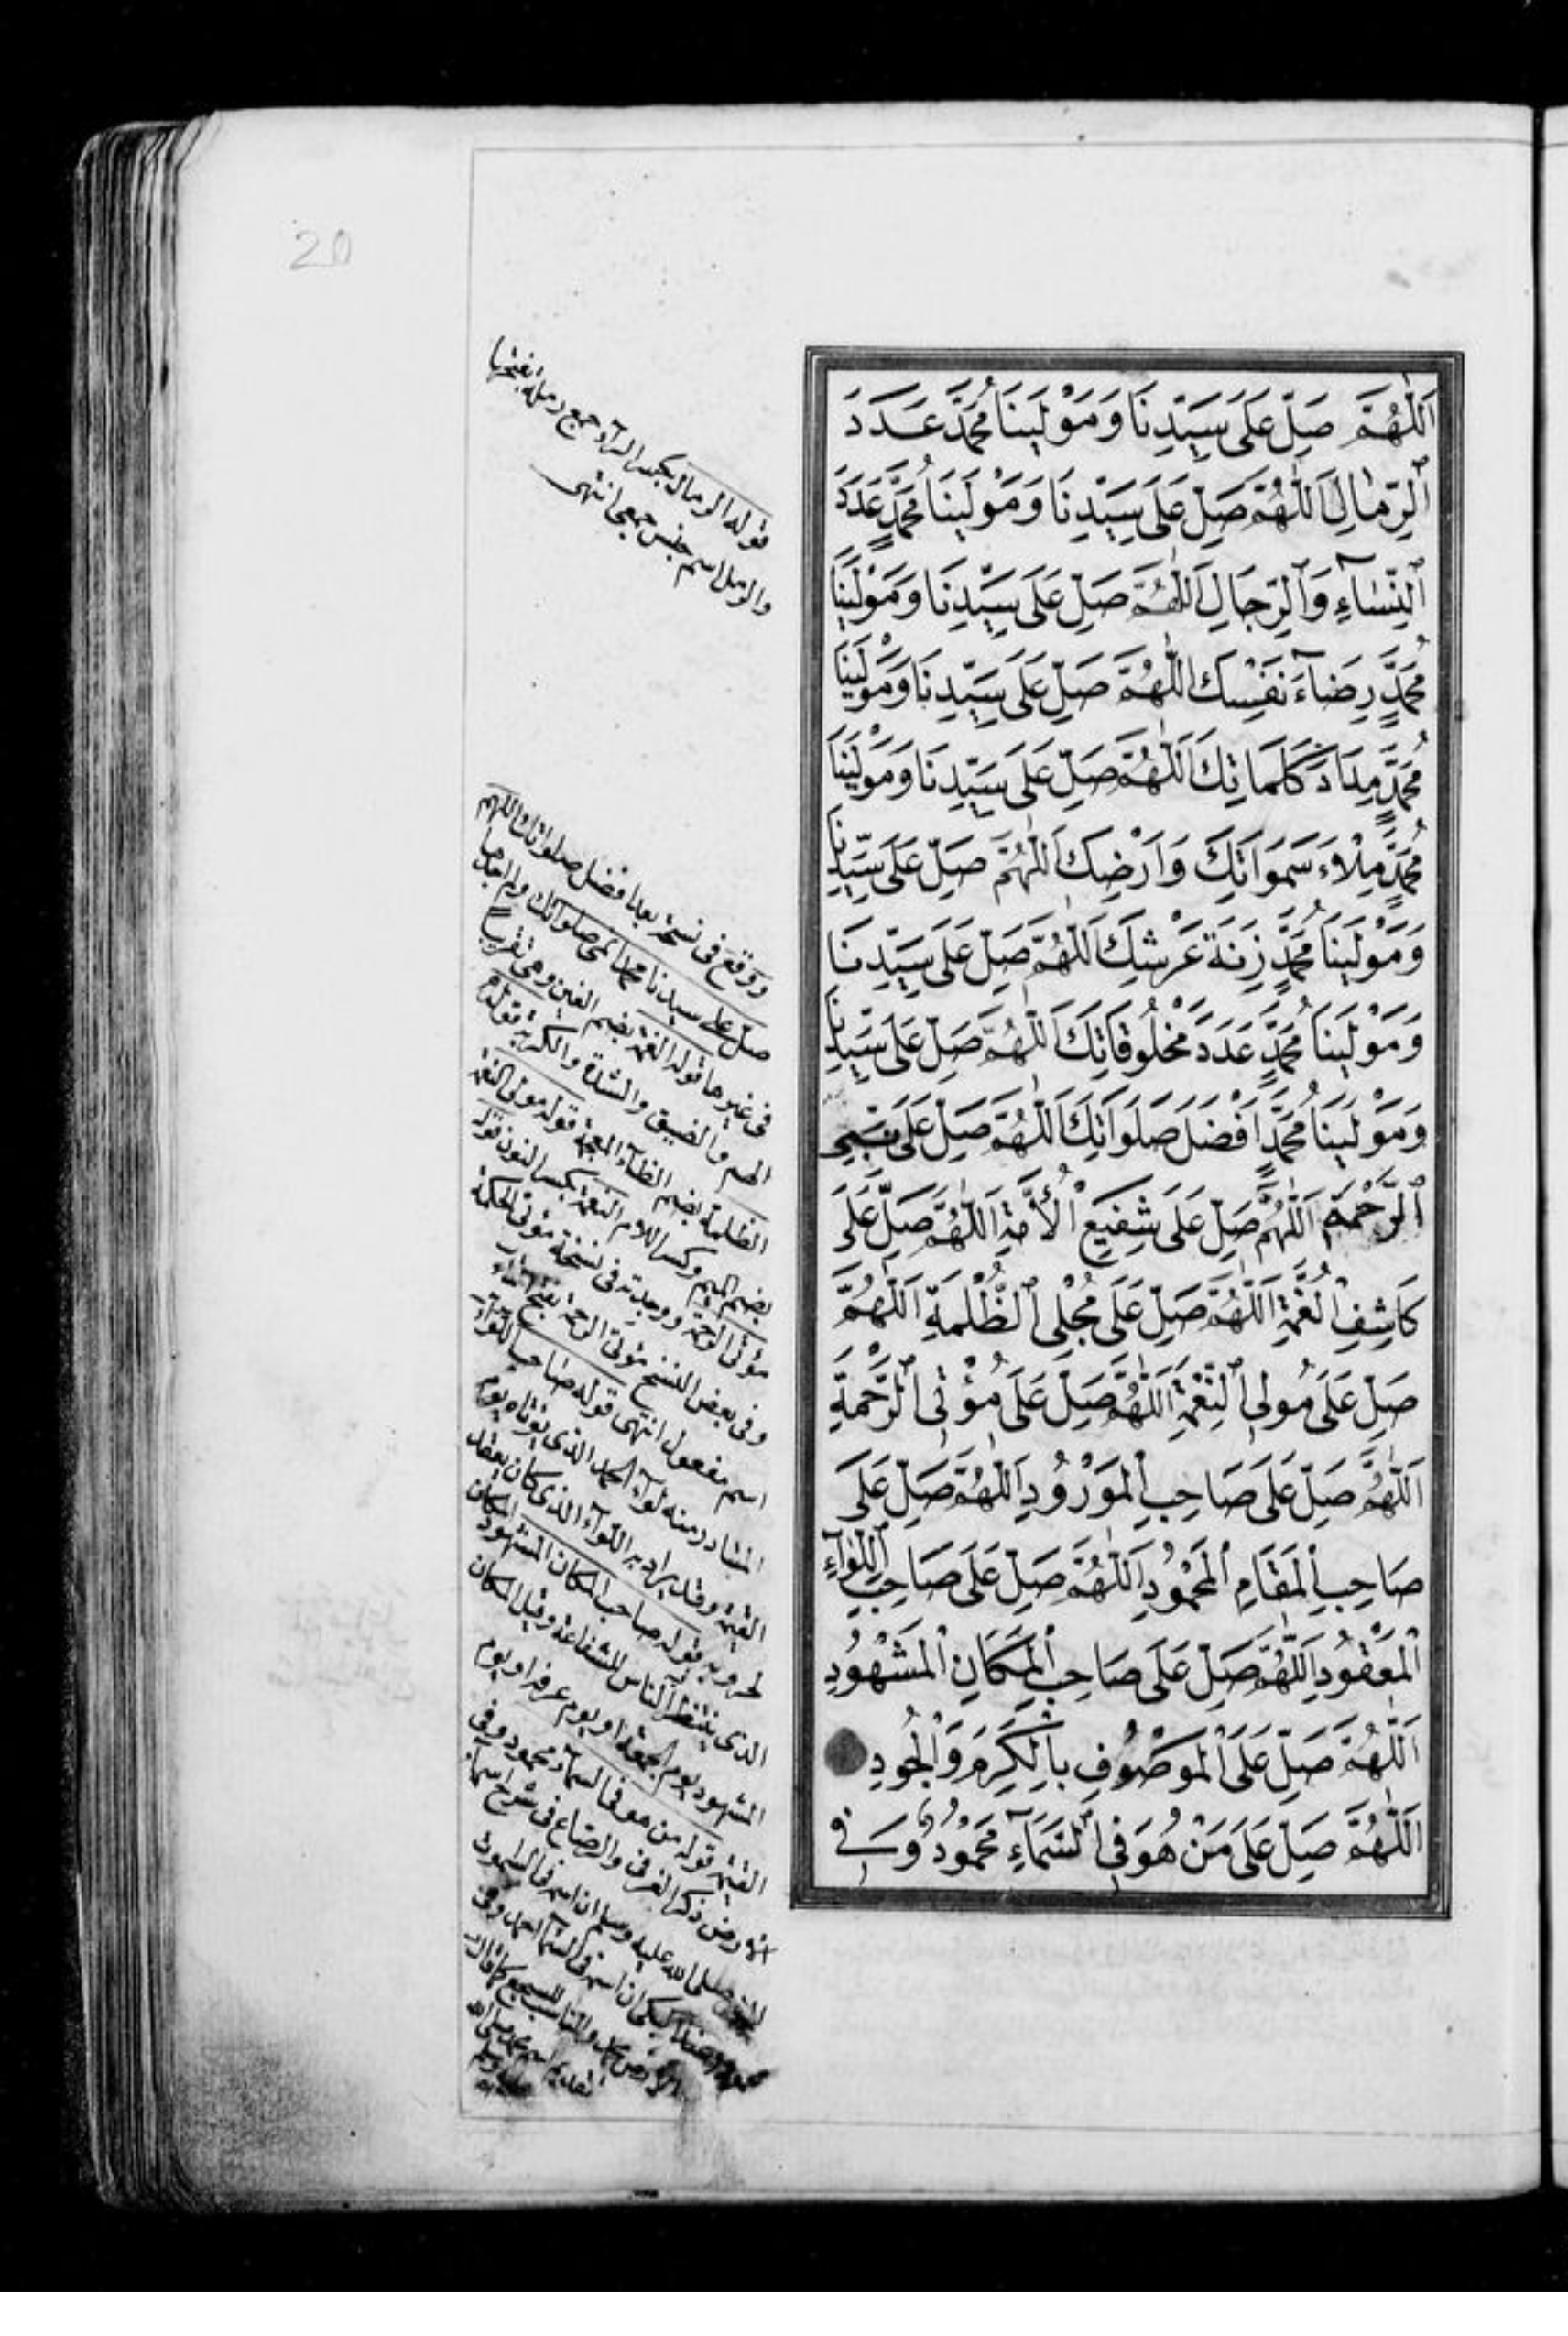 اَللّٰهُمَّ صَلِّ عَلَى سَيِّدِنَا وَمَوْلٰينَا مُحَمَّدٍ عَدَدَ
ٱلرِّمَالِ اَللّٰهُمَّ صَلِّ عَلَى سَيِّدِنَا وَمَوْلٰينَا مُحَمَّدٍ عَدَدَ
ٱلنِّسَآءِ وَٱلرِّجَالِ اَللّٰهُمَّ صَلِّ عَلَى سَيِّدِنَا وَمَوْلٰينَا
مُحَمَّدٍ رِضَآءَ نَفْسِكَ اَللّٰهُمَّ صَلِّ عَلَى سَيِّدِنَا وَمَوْلٰينَا
مُحَمَّدٍ مِدَادَ كَلِمَاتِكَ اَللّٰهُمَّ صَلِّ عَلَى سَيِّدِنَا وَمَوْلٰينَا
مُحَمَّدٍ مِلْاءَ سَمَوَاتِكَ وَاَرْضِكَ اَللّٰهُمَّ صَلِّ عَلَى سَيِّدِنَا
وَمَوْلٰينَا مُحَمَّدٍ زِنَةَ عَرْشِكَ اَللّٰهُمَّ صَلِّ عَلَى سَيِّدِنَا
وَمَوْلٰينَا مُحَمَّدٍ عَدَدَ مَخْلُوقَاتِكَ اَللّٰهُمَّ صَلِّ عَلَى سَيِّدِنَا
وَمَوْلٰينَا مُحَمَّدٍ اَفْضَلَ صَلَوَاتِكَ اَللّٰهُمَّ صَلِّ عَلَى نَبِيِّ
ٱلرَّحْمَةِ اَللّٰهُمَّ صَلِّ عَلَى شَفِيعِ ٱلْأُمَّةِ اَللّٰهُمَّ صَلِّ عَلَى
كَاشِفِ ٱلْغُمَّةِ اَللّٰهُمَّ صَلِّ عَلَى مُجْلِى ٱلظُّلْمَةِ اَللّٰهُمَّ
صَلِّ عَلَى مُولِى ٱلنِّعْمَةِ اَللّٰهُمَّ صَلِّ عَلَى مُؤْتِى ٱلرَّحْمَةِ
اَللّٰهُمَّ صَلِّ عَلَى صَاحِبِ ٱلْحَوْضِ ٱلْمَوْرُودِ اَللّٰهُمَّ صَلِّ عَلَى
صَاحِبِ ٱلْمَقَامِ ٱلْمَحْمُودِ اَللّٰهُمَّ صَلِّ عَلَى صَاحِبِ ٱللِّوَآءِ
ٱلْمَعْقُودِ اَللّٰهُمَّ صَلِّ عَلَى صَاحِبِ ٱلْمَكَانِ ٱلْمَشْهُودِ
اَللّٰهُمَّ صَلِّ عَلَى ٱلْمَوْصُوفِ بِٱلْكَرَمِ وَٱلْجُودِ
اَللّٰهُمَّ صَلِّ عَلَى مَنْ هُوَ فِى ٱلسَّمَآءِ مَحْمُودٌ وَفِى
20
قوله الرمال بكسر الرآء جمع رملة بفتحها
والرمل اسم جنس جمعى انتهى
ووقع فى نسخة بعد افضل صلواتك اللهم
صل على سيدنا محمد صلواتك
فى غيرها قوله الغمة بضم الغين وهى
الهم والضيق والشدة والكربة قوله
الظلمة بضم الظآء المعجمة قوله مولى النعمة
بضم الميم وكسر اللام النعمة بكسر النون قوله
مؤتى الرحمة ووجدته فى نسخة مؤتى الحكمة
وفى بعض النسخ مؤتى الرحمة بفتح
اسم مفعول انتهى قوله صاحب اللوآء
المتبادر منه لوآء الحمد الذى يؤتاه يوم
القيمة وقد يراد به اللوآء الذى كان يعقد
لحروبه قوله صاحب المكان المشهود
الذى ينتظر الناس للشفاعة وقيل المكان
المشهود يوم الجمعة او يوم عرفة او يوم
القيمة قوله من هو فى السمآء محمود وفى
الارض ذكر العزفى والرصاع فى شرح اسمآء
صلى الله عليه وسلم ان اسمه فى السموات